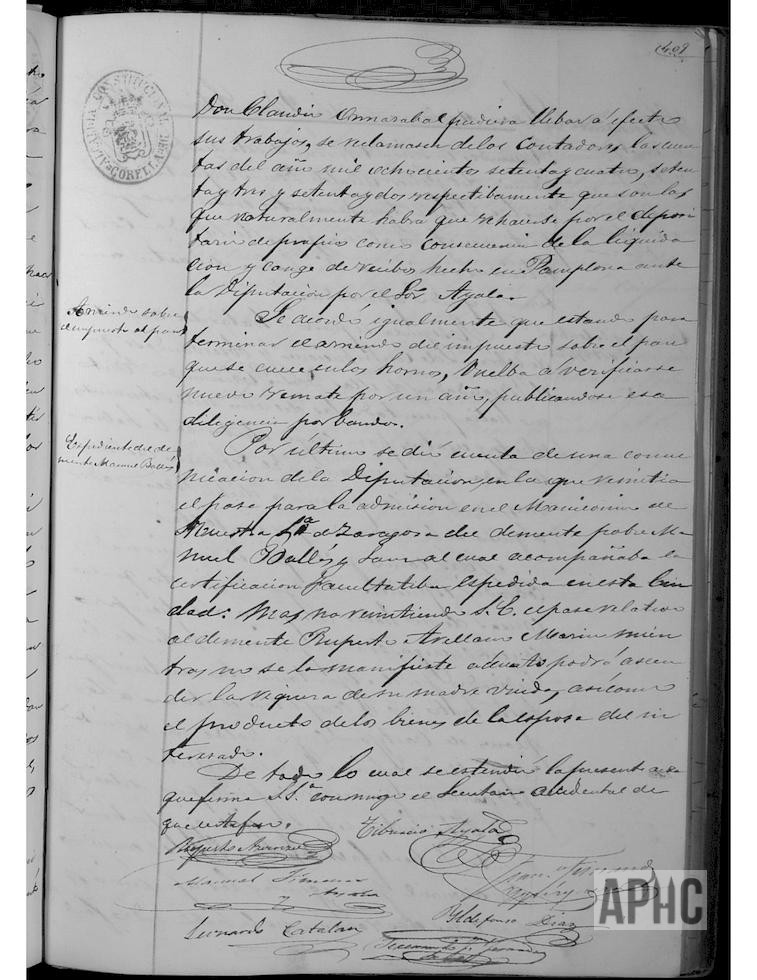 409
ALCALDIA CONSTITUCIONAL
CORELLA
Don Claudio pudiera llebar á efecto
sus trabajos, se reclamasen de los Contadores las cuen
tas del año mil ochocientos setenta y cuatro, seten
ta y tres y setenta y dos respectibamente que son las
que naturalmente habra que rehacerse por el deposi
tario de propios como consecuencia de la liquida
cion y cange de recibos hecho en Pamplona ante
la Diputacion por el Sor Ayala.
Arriendo sobre
el impuesto al pan
Se acordó igualmente que estando para
terminar el arriendo del impuesto sobre el pan
que se cuece en los hornos, vuelba á verificarse
nuevo remate por un año, publicandose esa
diligencia por bando.
Expediente del de
mente Manuel Ballés
Por ultimo se dió cuenta de una comu
nicacion de la Diputacion, en la que remitia
el pase para la admision en el Manicomio de
Nuestra Sra de Zaragoza del demente pobre Ma
nuel Ballés y al cual acompañaba la
certificacion facultatiba espedida en esta Ciu
dad: Mas no remitiendo S.E. el pase relativo
al demente Ruperto Arellano Marin mien
tras no se le manifieste a cuanto podrá ascen
der la de su madre viuda, asi como
el producto de los bienes de la esposa del in
teresado.
De todo lo cual se estendió la presente acta
que firma S.Sa conmigo el Secretario accidental de
que certifico.
Tiburcio Ayala
Manuel
y Ayala
Leonardo Catalan
Yldefonso Diaz
APHC